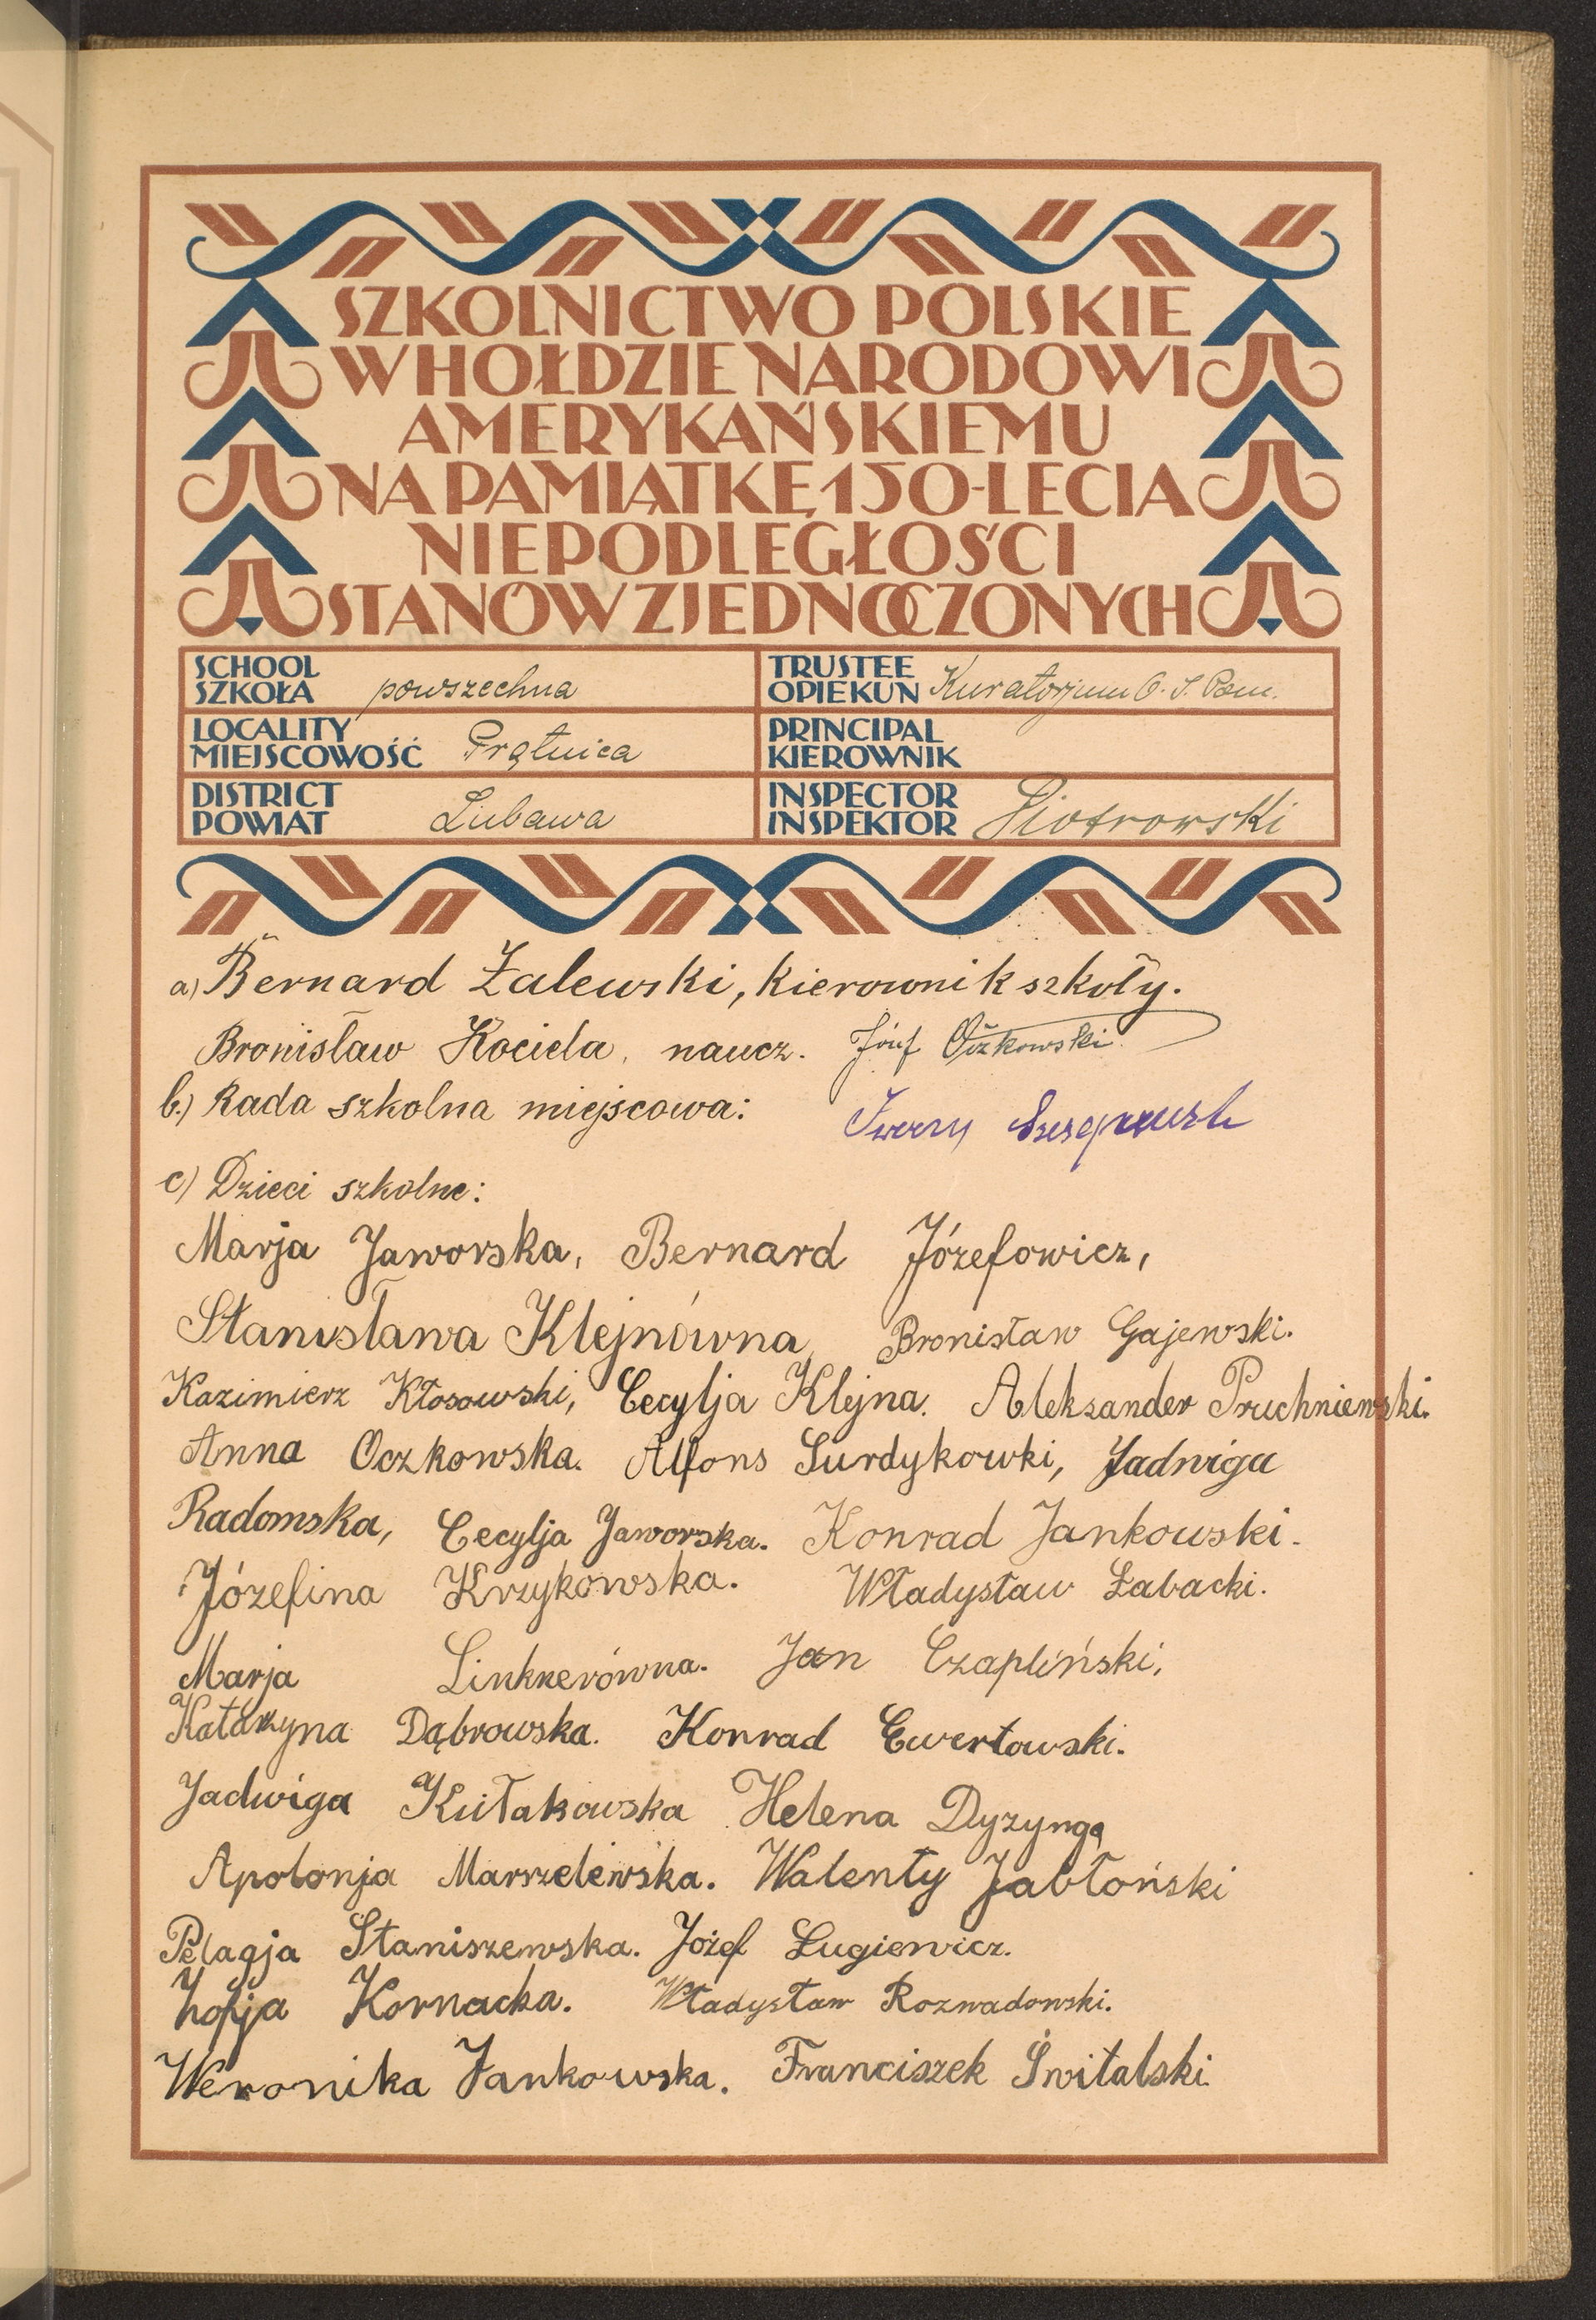 SZKOLNICTWO POLSKIE
W HOŁDZIE NARODOWI
AMERYKAŃSKIEMU
NA PAMIĄTKĘ 150-LECIA
NIEPODLEGŁOŚCI
STANÓW ZJEDNOCZONYCH
SCHOOL
SZKOŁA powszechna
TRUSTEE
OPIEKUN Kuratorjum O. S. Pom.
LOCALITY
MIEJSCOWOŚĆ Prątnica
PRINCIPAL
KIEROWNIK
DISTRICT
POWIAT Lubawa
INSPECTOR
INSPEKTOR Piotrowski
a) Bernard Zalewski, kierownik szkoły.
Bronisław Kociela, naucz. Józef Oczkowski
b.) Rada szkolna miejscowa:
c) Dzieci szkolne:
Marja Jaworska, Bernard Józefowicz,
Stanisława Klejnówna, Bronisław Gajewski.
Kazimierz Kłosowski, Cecylja Klejna. Aleksander Pruchniewski.
Anna Oczkowska. Alfons Surdykowki, Jadwiga
Radomska, Cecylja Jaworska. Konrad Jankowski.
Józefina Krzykowska. Władysław Łabacki.
Marja Linknerówna. Jan Czapliński,
Katarzyna Dąbrowska. Konrad Ewertowski.
Jadwiga Kułakowska Helena Dyzynga
Apolonja Marszelewska. Walenty Jabłoński
Pelagja Staniszewska. Józef Ługiewicz.
Zofja Kornacka. Władysław Rozwadowski.
Weronika Jankowska. Franciszek Świtalski.